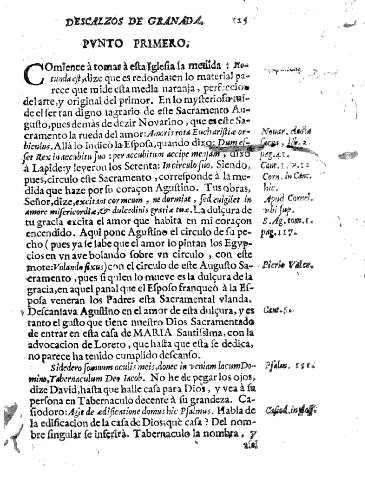 DESCALZOS DE GRANADA.
PVNTO PRIMERO.
COmience à tomas à esta Iglesia la medida: Ro-
tunda est, dize que es redonda: en lo material pa-
rece que mide esta media naranja, perfeccion
del arte, y original del primor. En lo mysterioso mi-
de el ser tan digno sagrario de este Sacramento Au-
gusto, pues demàs de dezir Novarino, que es este Sa-
cramento la rueda del amor: Amoris rota Eucharistiæ or-
biculus. Allà lo indicò la Esposa, quando dixo: Dum es-
set Rex in accubitu suo: per accubitum accipe mensam, dixo
à Lapide: y leyeron los Setenta: In circulo suo. Siendo,
pues, circulo este Sacramento, corresponde à la me-
dida que haze por su coraçon Agustino. Tus obras,
Señor, dize, excitant cor meum, ne dormiat, sed evigilet in
amore misericordiæ, & dulcedinis gratiæ tuæ. La dulçura de
tu gracia excita el amor que habita en mi coraçon
encendido. Aqui pone Agustino el circulo de su pe-
cho (pues ya se labe que el amor lo pintan los Egyp-
cios en vn ave bolando sobre vn circulo, con este
mote: Volando fixus) con el circulo de este Augusto Sa-
cramento, pues si quien lo mueve es la dulçura de la
gracia, en aquel panal que el Esposo franqueò à la Es-
posa veneran los Padres esta Sacramental vianda.
Descansava Agustino en el amor de esta dulçura, y es
tanto el gusto que tiene nuestro Dios Sacramentado
de entrar en esta casa de MARIA Santissima, con la
advocacion de Loreto, que hasta que esta se dedica,
no parece ha tenido cumplido descanso.
Si dedero somnum oculis meis, donec inveniam locum Do-
mino, Tabernaculum Deo Iacob. No he de pegar los ojos,
dize David, hasta que halle casa para Dios, y vea à su
persona en Tabernaculo decente à su grandeza. Ca-
siodoro: Agit de ædificatione domus hic Psalmus. Habla de
la edificacion de la casa de Dios; què casa? Del nom-
bre singular se inferirà. Tabernaculo la nombra, y
assi
Novar.
lib. 2.
pag. 41.
Cant. 1. v. 12
Corn. in Cant.
hic.
Apud Cornel.
vbi sup.
S. Ag. tom. 1.
pag. 117.
Pierio Valer.
Cant. 5.
Psalm. 131.
Casiod. in